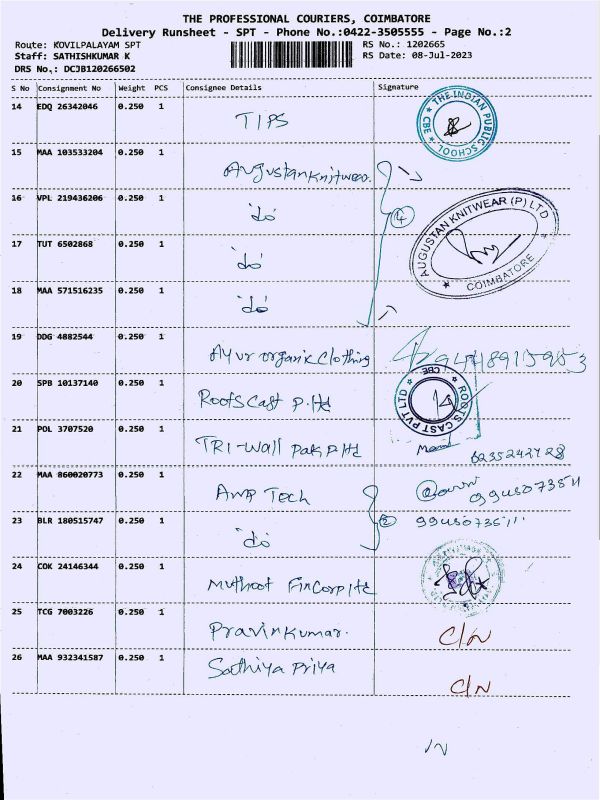 THE PROFESSIONAL COURIERS, COIMBATORE
Delivery Runsheet - SPT - Phone No.:0422-3505555 - Page No.:2
Route: KOVILPALAYAM SPT
RS No.: 1202665
Staff: SATHISHKUMAR K
RS Date: 08-Jul-2023
DRS No.: DCJB120266502
S No Consignment No Weight PCS Consignee Details Signature
14 EDQ 26342046 0.250 1 TIPS
THE INDIAN PUBLIC SCHOOL CBE
15 MAA 103533204 0.250 1 Augustan Knitwear.
16 VPL 219436206 0.250 1 "do"
4
AUGUSTAN KNITWEAR (P) LTD
COIMBATORE
17 TUT 6502868 0.250 1 "do"
18 MAA 571516235 0.250 1 "do"
19 DDG 4882544 0.250 1 Ayur organic Clothing
20 SPB 10137140 0.250 1 Roots Cast P. ltd
ROOTS CAST PVT LTD CBE
21 POL 3707520 0.250 1 TRI-Wall Pak P ltd
22 MAA 860020773 0.250 1 Amp Tech
23 BLR 180515747 0.250 1 "do"
2
24 COK 24146344 0.250 1 Muthoot FinCorp ltd
25 TCG 7003226 0.250 1 Pravinkumar.
C/N
26 MAA 932341587 0.250 1 Sathiya Priya
C/N